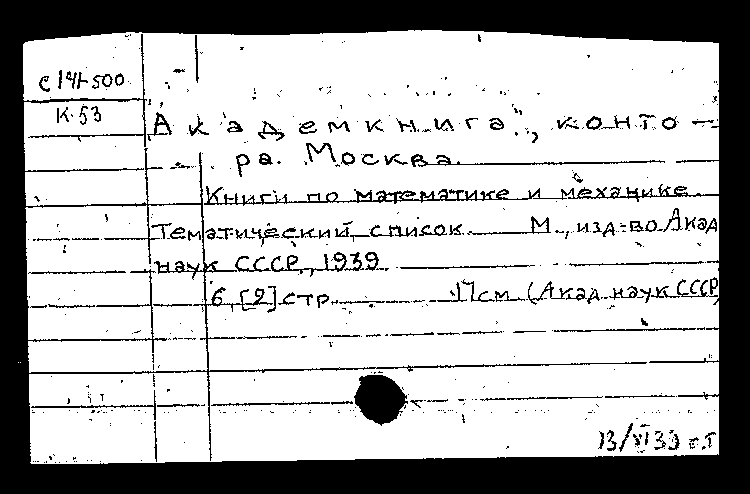 С 141-500
К-53
"Академкнига", конто-
ра. Москва.
Книги по математике и механике.
Тематический список. М., изд-во Акад
наук СССР, 1939
6, [2] стр. 17см (Акад наук СССР
13/VI 39 г.